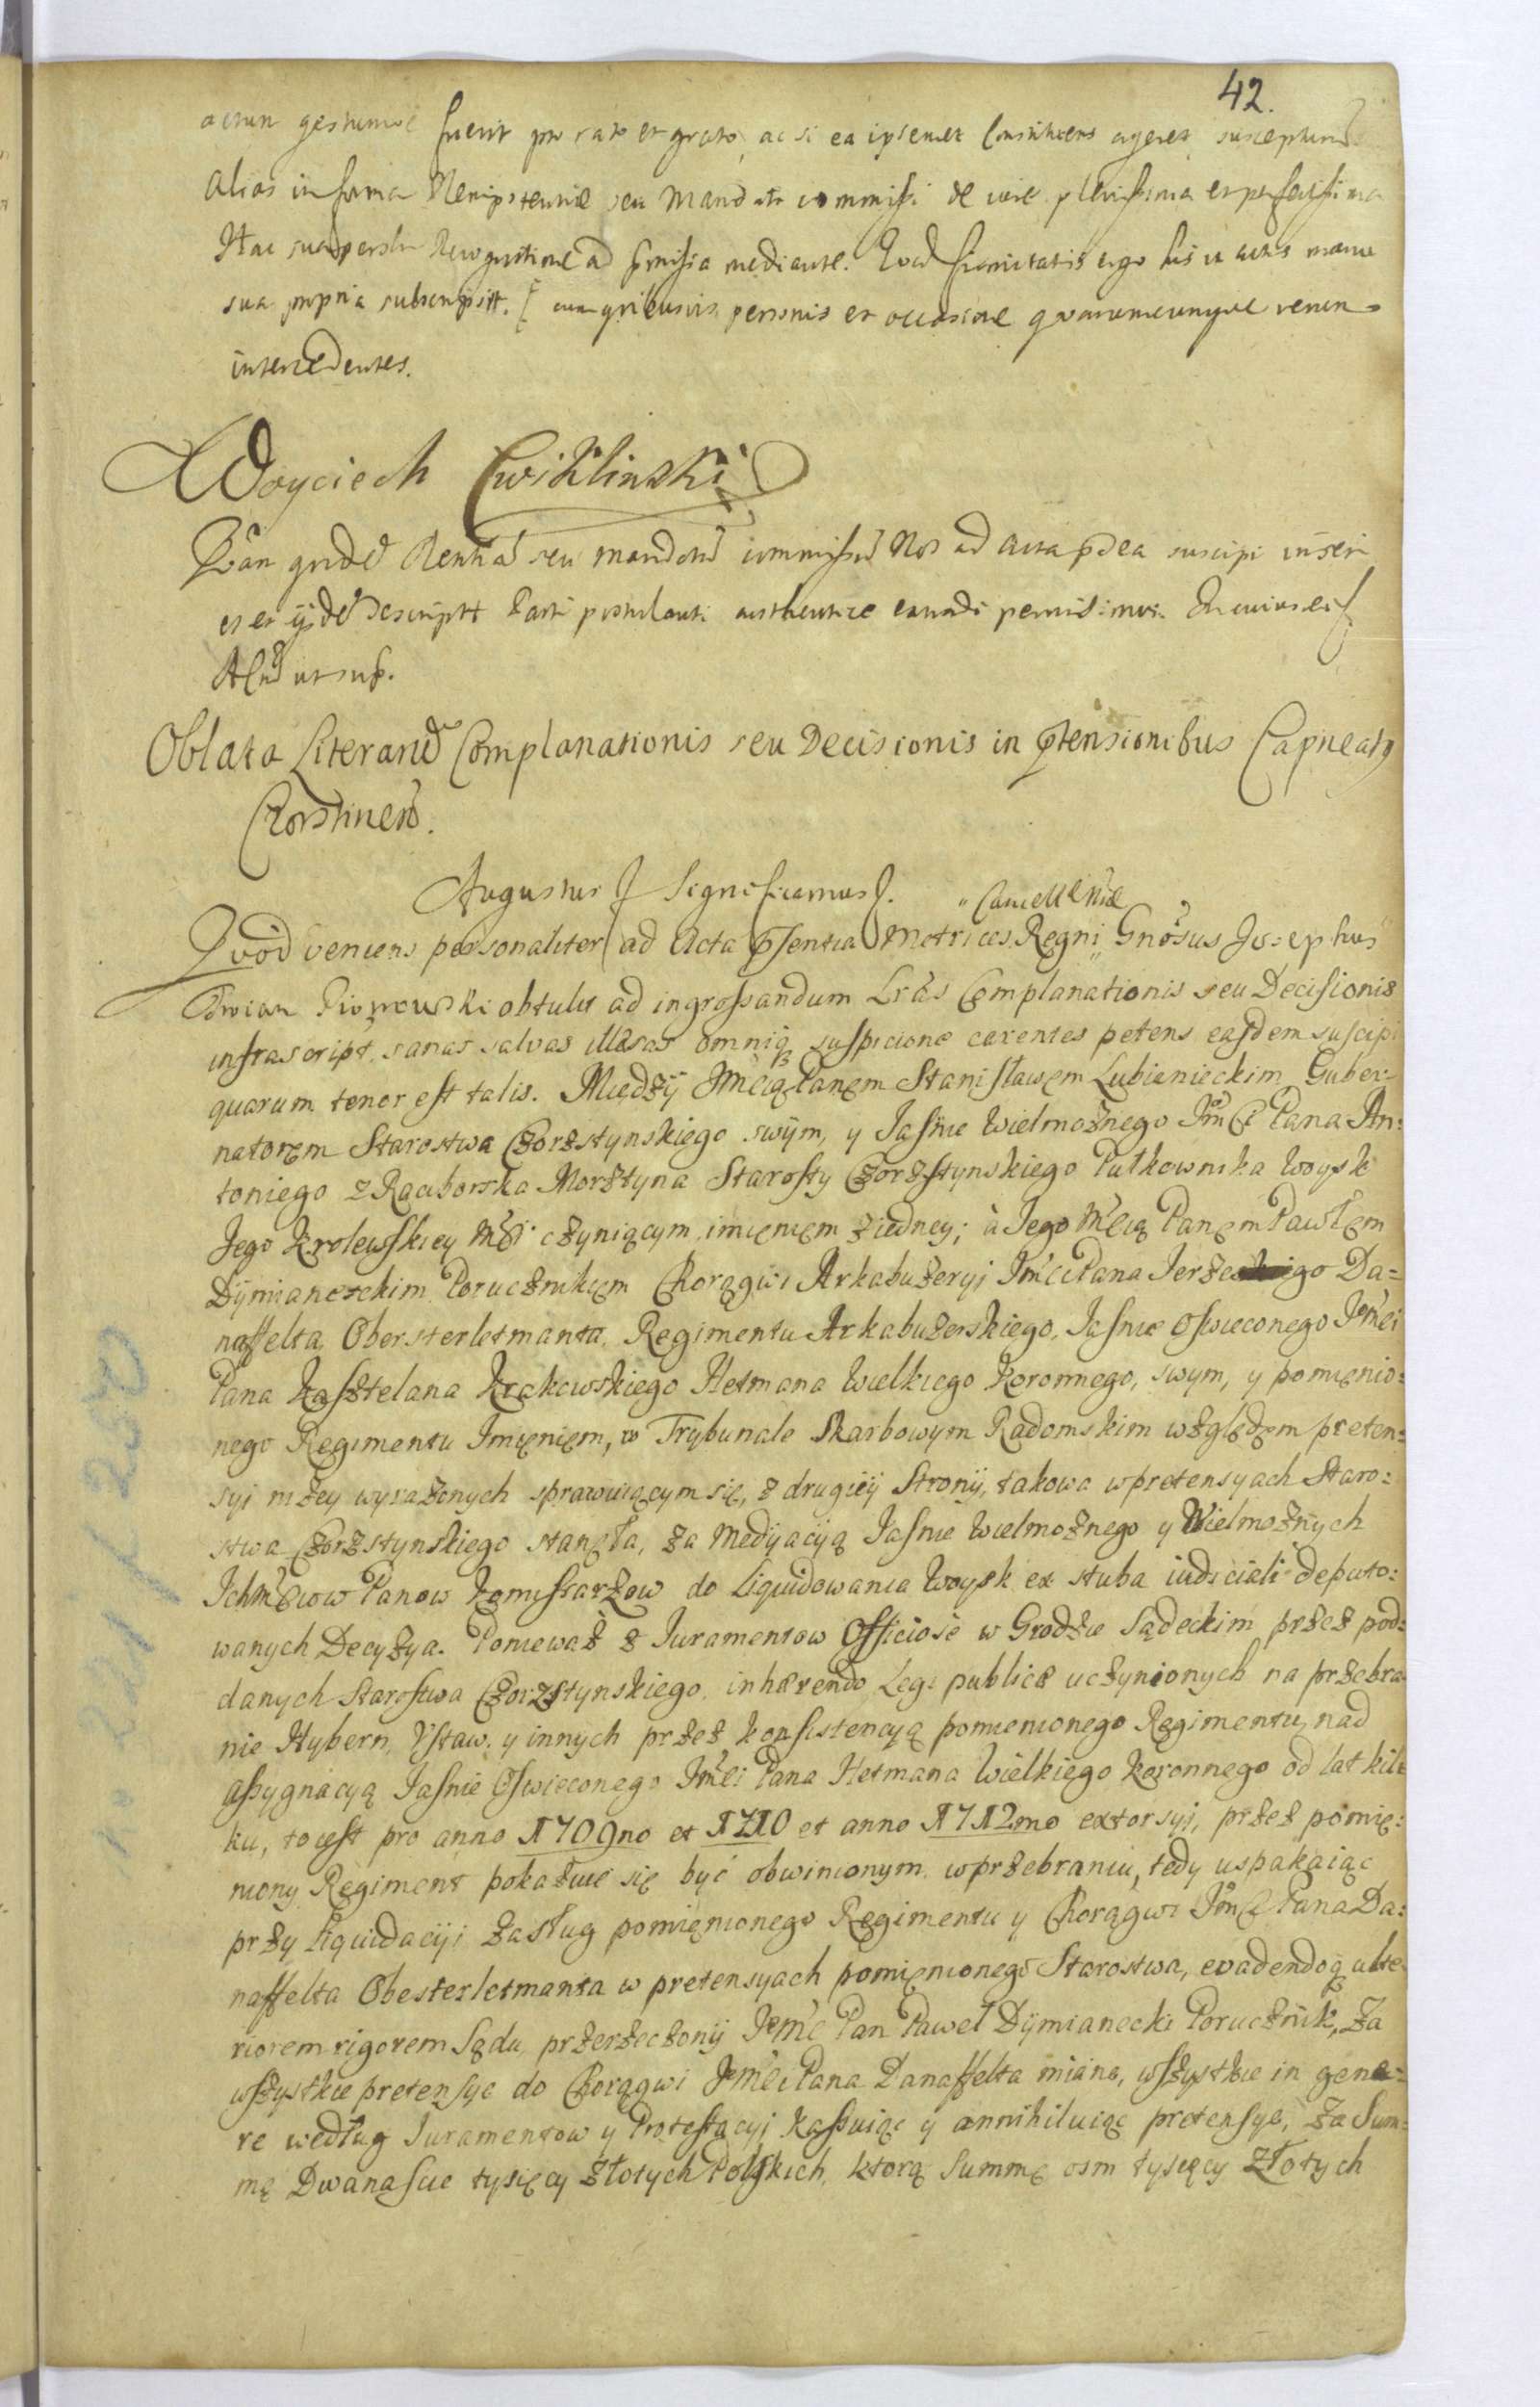 42.
actum gestumve fuerit pro rato et grato, ac si ea ipsemet Constituens ageret suscepturum
alias in forma Plenipotentiae seu Mandati commissi de iure plenissima et perfectissima
Hac sua personali Recognitione ad praemissa mediante. Quod firmitatis ergo his in actis manu
sua propria subscripsit. [ cum quibusvis personis et occasione quarumcunque rerum
intercedentes.
Woyciech Cwiklinski
Quam quidem Plentiam seu mandatum commissum Nos ad Acta pdca suscipi inseri
et ex ijsdem descriptam Parti postulanti authentice extradi permisimus. In cuius rei
Actum ut sup.
Oblata Literarum Complanationis seu Decisionis in ptensionibus Capneatus
Czorstinen.
Augustus Significamus.
Quod veniens personaliter ad Acta psentia Metrices Regni "Cancellariae Gnosus Josephus
Piotrowski obtulit ad ingrossandum Lrás Complanationis seu Decisionis
infrascript. sanas salvas illaesas omniq suspicione carentes petens easdem suscipi
quarum tenor est talis. Między Jmcią Panęm Stanisławęm Lubienieckim Guber:
natoręm Starostwa Czorsztynskiego swym, y Jasnie Wielmożnego Jm Pana An:
toniego z Raciborska Morsztyna Starosty Czorsztynskiego Pułkownika Woysk
Jego Krolewskiey Mci czyniącym imięnięm z iedney; à Jego Mcią Panęm Pawłęm
Dymianeckim Porucznikięm Chorągwi Arkabuzeryi Jmci Pana Jerzego Da=
naffelta Obersterletmanta Regimentu Arkabuzerskiego, Jasnie Oswieconego Jemci
Pana Kasztelana Krakowskiego Hetmana Wielkiego Koronnego, swym, y pomięnio:
nego Regimentu Imięnięm, w Trybunale Skarbowym Radomskim względęm preten:
syi niżey wyrażonych sprawuiącym się, z drugiey Strony, takowa w pretensyach Staro:
stwa Czorsztynskiego stanęła, za Medyacyą Jasnie Wielmożnego y Wielmożnych
Ichmciow Panow Komissarzow do Liquidowania Woysk ex stuba iudiciali deputo:
wanych Decyzya. Poniewaz z Juramentow Officiosè w Grodzie Sądeckim przez pod:
danych Starostwa Czorsztynskiego, inhaerendo Legi publicae uczynionych na przebra
nie Hybern, Ustaw. y innych przez konsistencyą pomienionego Regimentu, nad
assygnacyą Jasnie Oswieconego Jmci Pana Hetmana Wielkiego Koronnego od lat kil
ku, to iest pro anno 1709no et 1710 et anno 1712mo extorsyi, przez pomię:
niony Regiment pokazuie się być obwinionym w przebraniu, tedy uspakaiąc
przy Liquidacyi zasług pomięnionego Regimentu y Chorągwi Jm Pana Da:
naffelta Obesterletmanta w pretensyach pomięnionego Starostwa, evadendoq ulte
riorem rigorem Sądu, przerzeczony Jemc Pan Paweł Dymianecki Porucznik, za
wszystkie pretensye do Chorągwi Jemci Pana Danaffelta miane, wszystkie in gene=
re według Juramentow y Protestacyi kassuiąc y annihiluiąc pretensye, za Sum:
mę Dwanascie tysięcy złotych Polskich, ktorą Summę osm tysięcy złotych